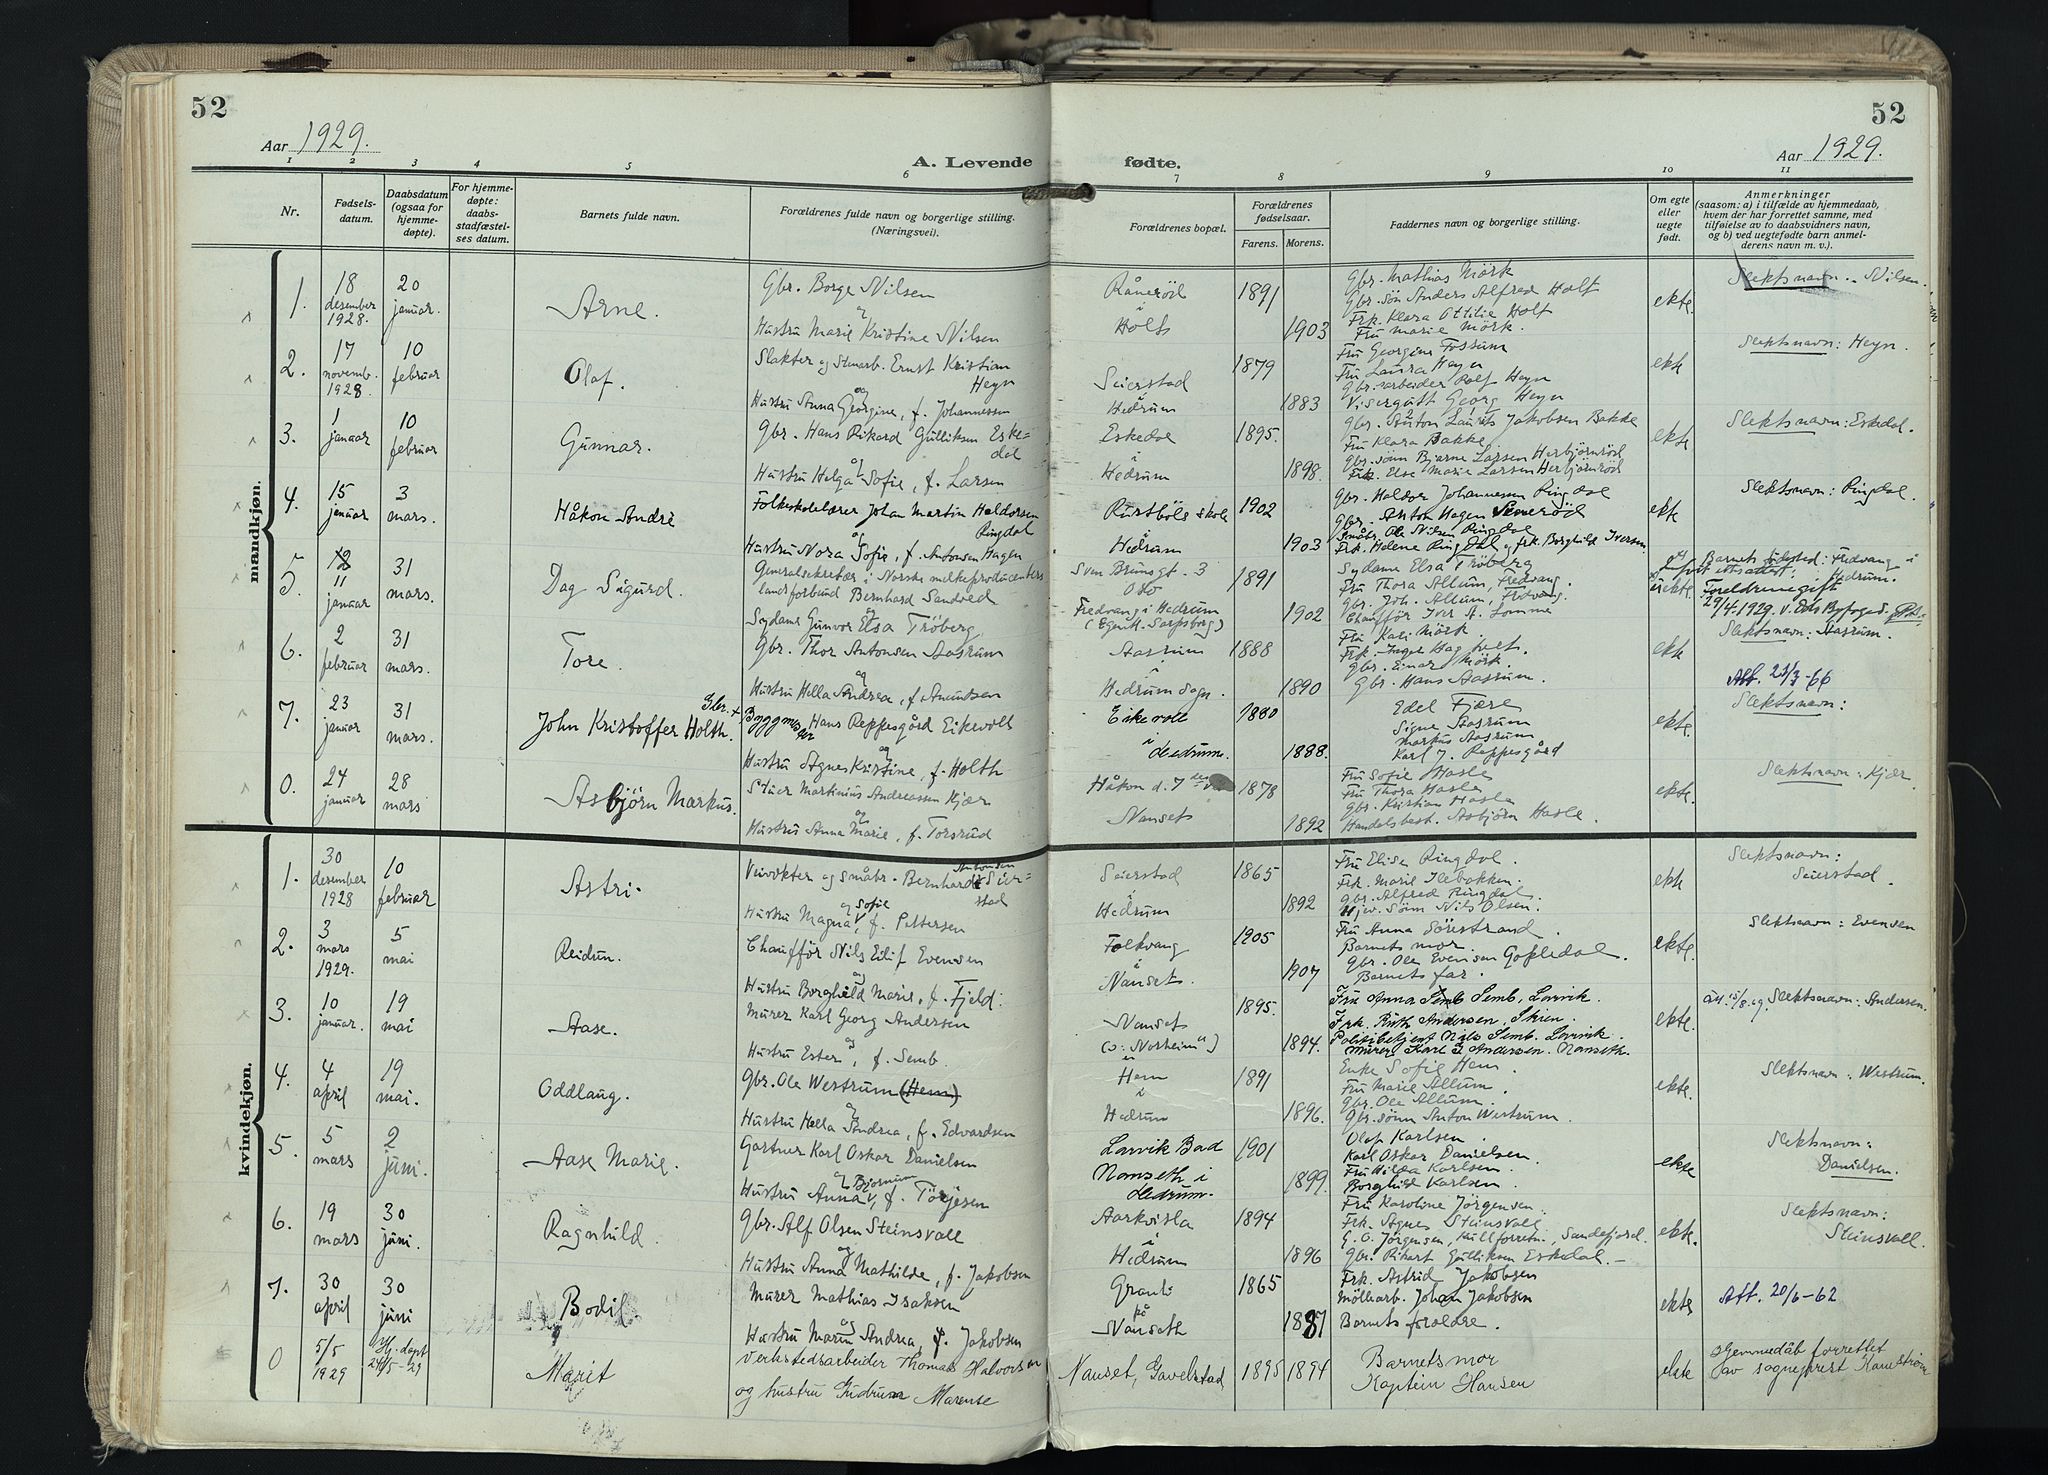 52
52
Aar 1929.
Aar 1929.
A. Levende fødte.
1 2 3 4 5 6 7 8 9 10 11
Nr.
Fødselsdatum.
Daabsdatum (ogsaa for hjemmedøpte).
For hjemmedøpte: daabsstadfæstelses datum.
Barnets fulde navn.
Forældrenes fulde navn og borgerlige stilling. (Næringsvei).
Forældrenes bopæl.
Forældrenes fødselsaar.
Farens. Morens.
Faddernes navn og borgerlige stilling.
Om egte eller uegte født.
Anmerkninger
(saasom: a) i tilfælde av hjemmedaab, hvem der har forrettet samme, med tilføielse av to daabsvidners navn, og b) ved uegtefødte barn anmelderens navn m. v.).
mandkjøn.
1. 18 desember 1928. 20 januar. Arne.
Gbr. Borge Nilsen
og
Hustru Marie Kristine Nilsen
Rånerød i Holts 1891 1903
Gbr. Mathias Mörk
Gbr. sön Anders Alfred Holt
Frk. Klara Ottilie Holt
Fru Marie Mörk.
ekte
Slektsnavn: Nilsen.
2. 17 novemb. 1928 10 februar Olaf.
Slakter og Stenarb. Ernst Kristian Heyn
og
Hustru Anna Georgine, f. Johannessen
Seierstad i Hedrum 1879 1883
Fru Georgine Fossum
Fru Laura Heyn
Gbr. arbeider Rolf Heyn
Visergutt Georg Heyn
ekte
Slektsnavn: Heyn.
3. 1 januar 10 februar Gunnar.
Gbr. Hans Rikard Gulliksen Eskedal
og
Hustru Helga Sofie, f. Larsen
Eskedal i Hedrum 1895. 1898.
Gbr. Anton Laurits Jakobsen Bakke
Fru Klara Bakke
Gbr. sönn Bjarne Larsen Herbjörnröd
Frk. Else Marie Larsen Herbjörnröd
ekte
Slektsnavn: Eskedal.
4. 15 januar 3 mars. Håkon André
Folkeskolelærer Johan Martin Haldorsen Ringdal
og
Hustru Nora Sofie, f. Antonsen Hagen
Rustböle skole Hedrum 1902 1903
Gbr. Haldor Johannessen Ringdal
Gbr. Anton Hagen
Småbr. Ole Nilsen Ringdal
Frk. Helene Ringdal og frk. Borghild Iversen
ekte
Slektsnavn: Ringdal.
5. 11 januar 31 mars. Dag Sigurd.
Generalsekretær i Norske melkeproducenters landsforbund Bernhard Sandved
og
Sydame Gunvor Elsa Tröberg
Sven Brunsgt. 3 Oslo
Fredvang i Hedrum
(Egentl. Sarpsborg) 1891 1902
Sydame Elsa Tröberg
Fru Thora Allum, Fredvang.
Gbr. Joh. Allum, Fredvang.
Chaufför Iver A. Lomme
uekte.
Barnets födested: Fredvang i Hedrum.
Foreldrene gift
29/4. 1929. v. Oslo Byfoged.
6. 2 februar 31 mars. Tore.
Gbr. Thor Antonsen Aasrum
og
Hustru Hella Andrea, f. Amundsen
Aasrum i Hedrum sogn. 1888 1890
Fru Kari Mörk.
Gbr. Einar Mörk.
Gbr. Hans Aasrum.
ekte
Slektsnavn: Aasrum.
Att. 23/3-66
7. 23 januar 31 mars. John Kristoffer Holth.
Gbr. + Byggmester Hans Reppesgård Eikevolt
og
Hustru Agnes Kristine, f. Holth
Eikevoll i Hedrum. 1880 1888.
Edel Fjære
Signe Aasrum
Markus Aasrum
Karl J. Reppesgård
ekte
Slektsnavn:
0. 24 januar 28 mars Asbjørn Markus.
Stuer Martinius Andreassen Kjær
og
Hustru Anna Marie, f. Torsrud
Håkon d. 7 des v. Nanset. 1878 1892
Fru Sofie Hasle
Fru Thora Hasle
Gbr. Kristian Hasle
Handelsbest. Asbjörn Hasle.
ekte.
Slektsnavn: Kjær
kvindekjøn.
1. 30 desember 1928 10 februar Astri.
Veivokter og småbr. Bernhard Antonsen Seierstad
og
Hustru Magna Sofie, f. Pettersen
Seierstad i Hedrum 1865 1892
Fru Elise Ringdal.
Frk. Marie Ilebakken.
Gbr. Alfred Ringdal
Hjev. Sönn Nils Olsen.
ekte
Slektsnavn: Seierstad.
2. 3 mars 1929. 5 mai Reidun.
Chaufför Nils Eilif Evensen
og
Hustru Borghild Marie, f. Fjeld.
Folkvang i Nanset. 1905 1907
Fru Anna Sörestrand.
Barnets mor.
Gbr. Ole Evensen Gopledal.
Barnets far.
ekte.
Slektsnavn: Evensen
3. 10 januar. 19 mai Aase.
Murer Karl Georg Andersen
og
Hustru Ester, f. Semb.
Nanset ("Norheim") 1895. 1894.
Fru Anna Semb, Larvik.
Frk. Ruth Andersen, Skien.
Politibetjent Nils Semb. Larvik.
Murer Karl G Andersen. Nanseth.
ekte.
Slektsnavn: Andersen.
4. 4 april 19 mai. Oddlaug.
Gbr. Ole Westrum (Hem)
og
Hustru Hella Andrea, f. Edvardsen
Hem i Hedrum 1891 1896.
Enke Sofie Hem.
Fru Marie Allum.
Gbr. Ole Allum.
Gbr. sönn Anton Westrum.
ekte.
Slektsnavn: Westrum.
5. 5 mars 2 juni. Aase Marie.
Gartner Karl Oskar Danielsen
og
Hustru Anna Bjornum, f. Torjesen
Larvik Bad Nanseth i Hedrum. 1901 1899.
Olaf Karlsen.
Karl Oskar Danielsen.
Fru Hilda Karlsen.
Borghild Karlsen.
ekte
Slektsnavn: Danielsen.
6. 19 mars 30 juni. Ragnhild.
Gbr. Alf Olsen Steinsvall
og
Hustru Anna Mathilde, f. Jakobsen
Aarkvisla i Hedrum 1894 1896
Fru Karoline Jörgensen.
Frk. Agnes Steinsvall
G. O. Jörgensen, Kullforretn., Sandefjord.
Gbr. Rikart Gulliksen Eskedal.
ekte.
Slektsnavn: Steinsvall.
7. 30 april 30 juni Bodil.
Murer Mathias Isaksen
og
Hustru Maren Andrea, f. Jakobsen
Granli på Nanseth 1865 1887
Frk. Astrid Jakobsen
Möllearb. Johan Jakobsen
Barnets foreldre.
ekte
Att. 20/6-62
0 5/5 1929 Hj. döpt 24/5-29 Marit
Verkstedsarbeider Thomas Halvorsen
og hustru Gudrun Marense
Nanset, Gavelstad 1895 1894
Barnets mor
Kaptein Hansen
ekte
Hjemmedåb forrettet
av sogneprest Hamström